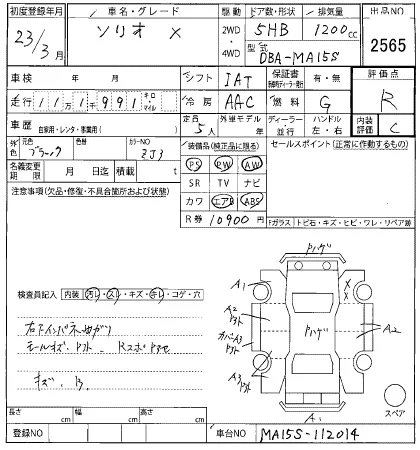 初度登録年月 車名・グレード 駆動 ドア数・形状 排気量 出品NO
23/3月 ソリオ X 2WD・4WD 5HB 1200cc 2565
型式 DBA-MA15S
車検 年 月 シフト IAT 保証書 有・無 評価点
走行 11万1千991キロ・マイル 冷房 AAC 燃料 G R
車歴 自家用・レンタ・事業用( ) 定員 5人 外車モデル 年 ディーラー・並行 ハンドル 左・右 内装評価 C
外色 元色 ブラック 色替 カラーNO ZJ3 装備品(純正品に限る) セールスポイント(正常に動作するもの)
名義変更期限 月 日迄 積載 t PS PW AW
注意事項(欠品・修復・不具合箇所および状態) SR TV ナビ
カワ エアB ABS
R券 10900円 Fガラス トビ石・キズ・ヒビ・ワレ・リペア跡
検査員記入 内装 汚レ・スレ・キズ・キレ・コゲ・穴
トハゲ
A1
A2
トハゲ
A2
A3
A1
スペア
キズ
長さ cm 幅 cm 高さ cm
登録NO 車台NO MA15S-112014